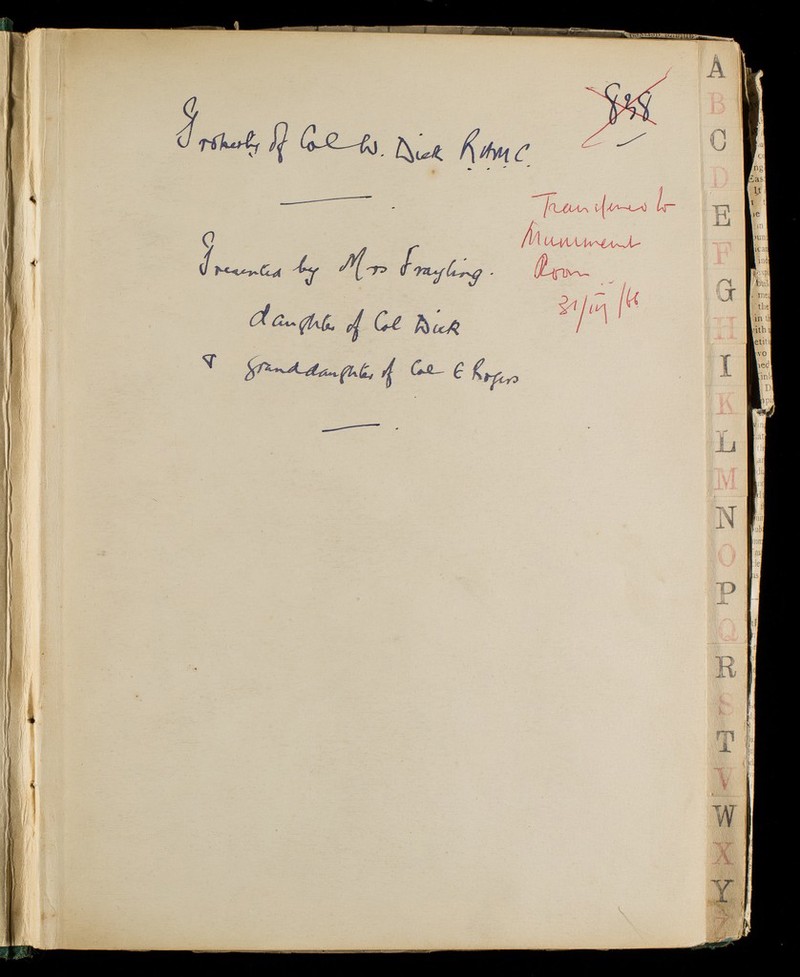 838
Property of Col W. Dick RAMC.
Transferred to
Muniment
Room
Presented by Mrs Frayling.
daughter of Col Dick
& granddaughter of Col E Rogers
A
B
C
D
E
F
G
H
I
K
L
M
N
O
P
Q
R
S
T
V
W
X
Y
Z